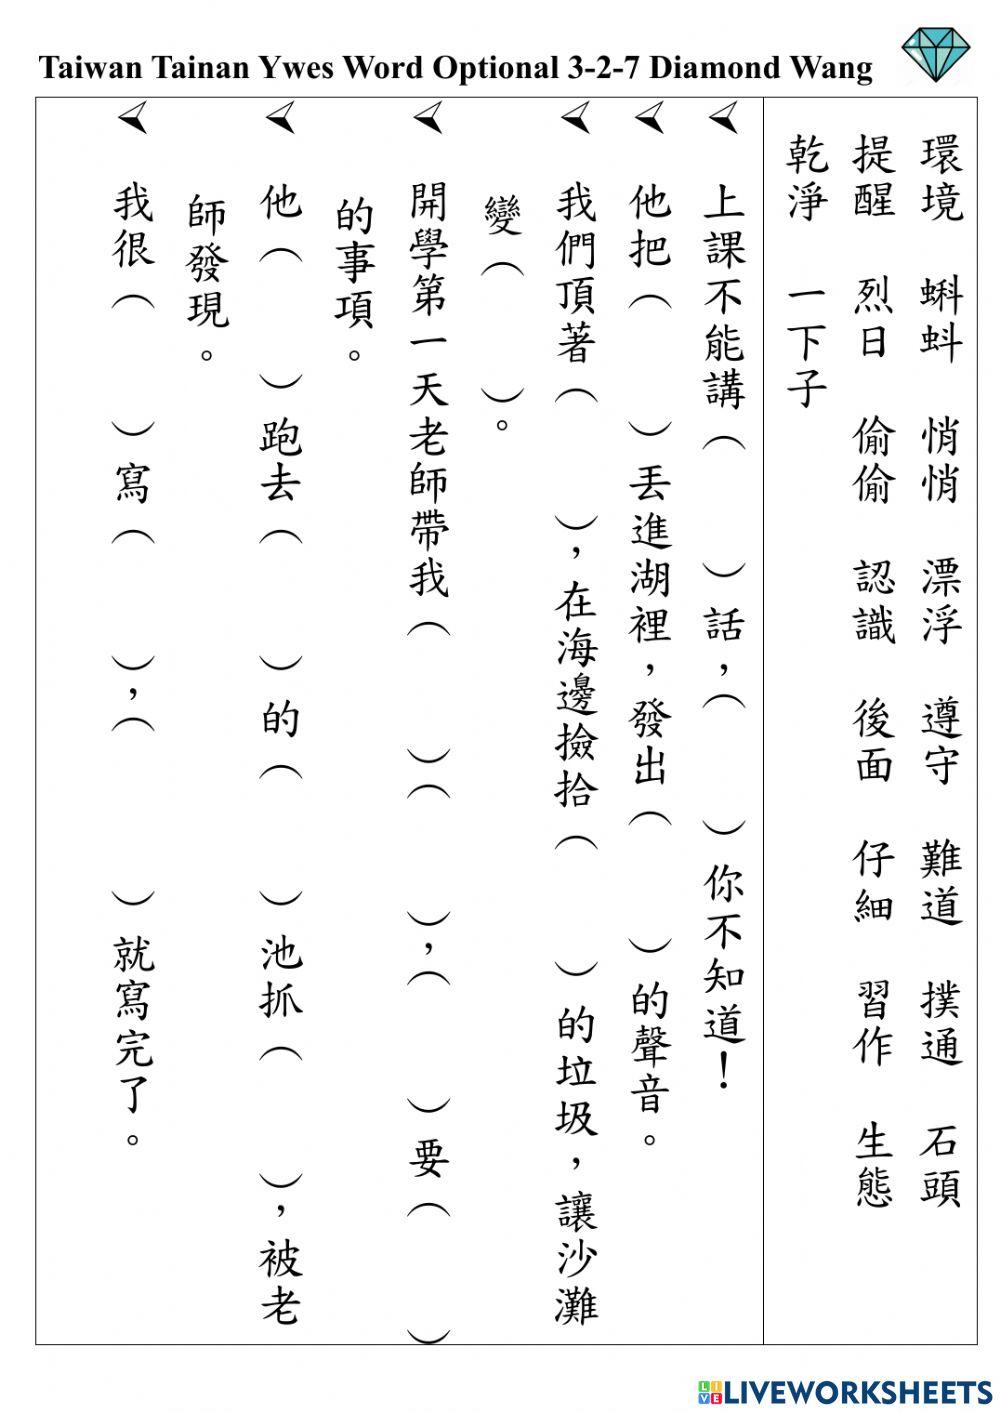 Taiwan Tainan Ywes Word Optional 3-2-7 Diamond Wang
環境 蝌蚪 悄悄 漂浮 遵守 難道 撲通 石頭
提醒 烈日 偷偷 認識 後面 仔細 習作 生態
乾淨 一下子
上課不能講( )話,( )你不知道!
他把( )丟進湖裡,發出( )的聲音。
我們頂著( ),在海邊撿拾( )的垃圾,讓沙灘
變( )。
開學第一天老師帶我( )( ),( )要( )
的事項。
他( )跑去( )的( )池抓( ),被老
師發現。
我很( )寫( ),( )就寫完了。
LIVEWORKSHEETS